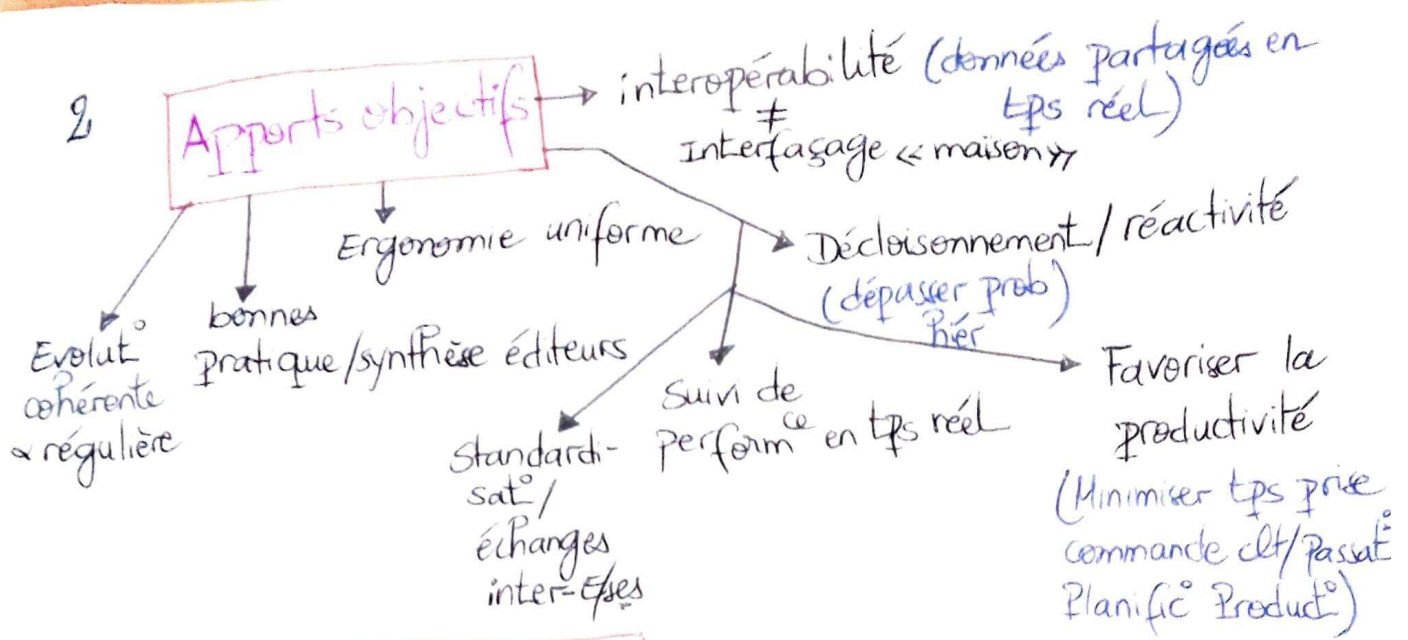 2
Apports objectifs
interopérabilité (données partagées en
tps réel)
≠
Interfaçage « maison »
Ergonomie uniforme
Décloisonnement / réactivité
(dépasser prob)
hiér
bonnes
pratique/synthèse éditeurs
Evolut°
cohérente
& régulière
Standardi-
sat°/
échanges
inter-E/ses
Suivi de
perform^ce en tps réel
Favoriser la
productivité
(Minimiser tps prise
commande clt/Passat°
Planific° Product°)